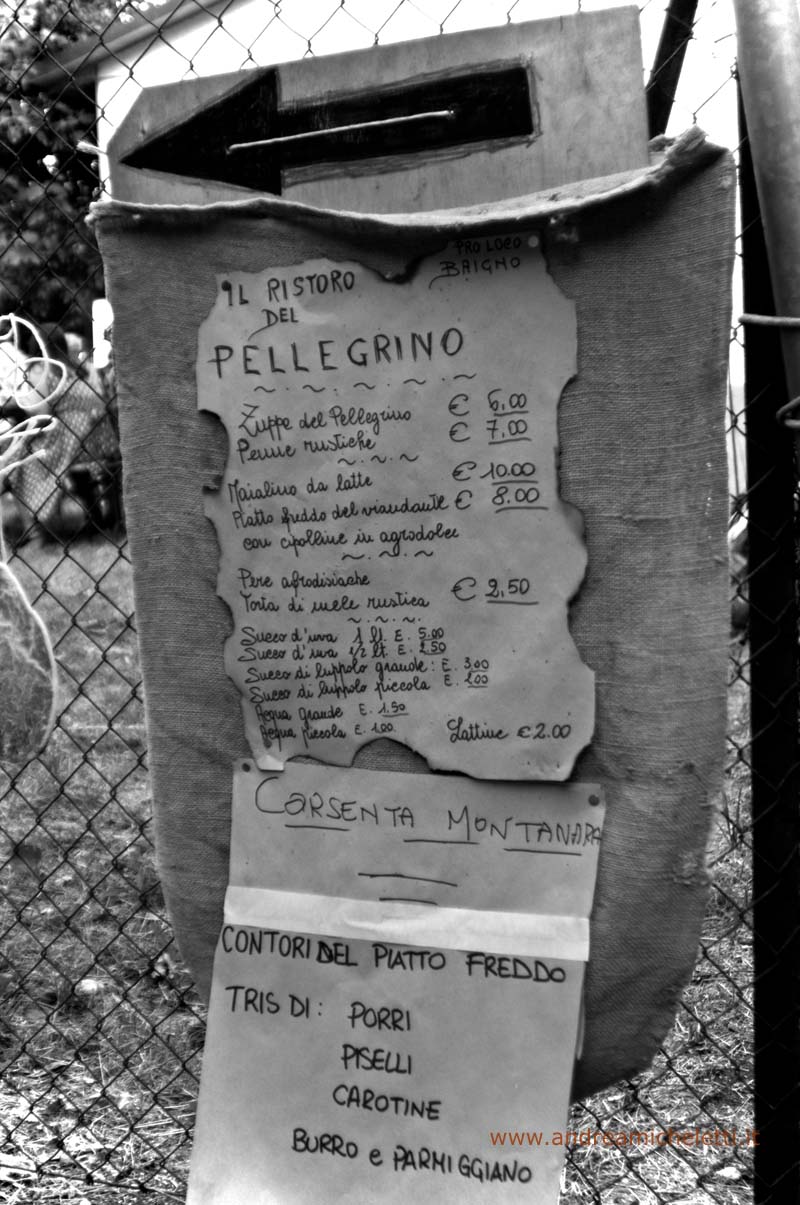 PRO LOCO
BAIGNO
IL RISTORO
DEL
PELLEGRINO
Zuppe del Pellegrino € 6,00
Penne rustiche € 7,00
Maialino da latte € 10.00
Piatto freddo del viandante € 8.00
con cipolline in agrodolce
Pere afrodisiache
Torta di mele rustica € 2,50
Succo d'uva 1 lt. E. 5.00
Succo d'uva 1/2 lt. E. 2.50
Succo di luppolo grande: E. 3,00
Succo di luppolo piccola E. 2.00
Acqua grande E. 1.50
Acqua piccola E. 1.00 Lattine € 2.00
CARSENTA MONTANARA
CONTORI DEL PIATTO FREDDO
TRIS DI: PORRI
PISELLI
CAROTINE
BURRO e PARMIGGIANO
www.andreamicheletti.it